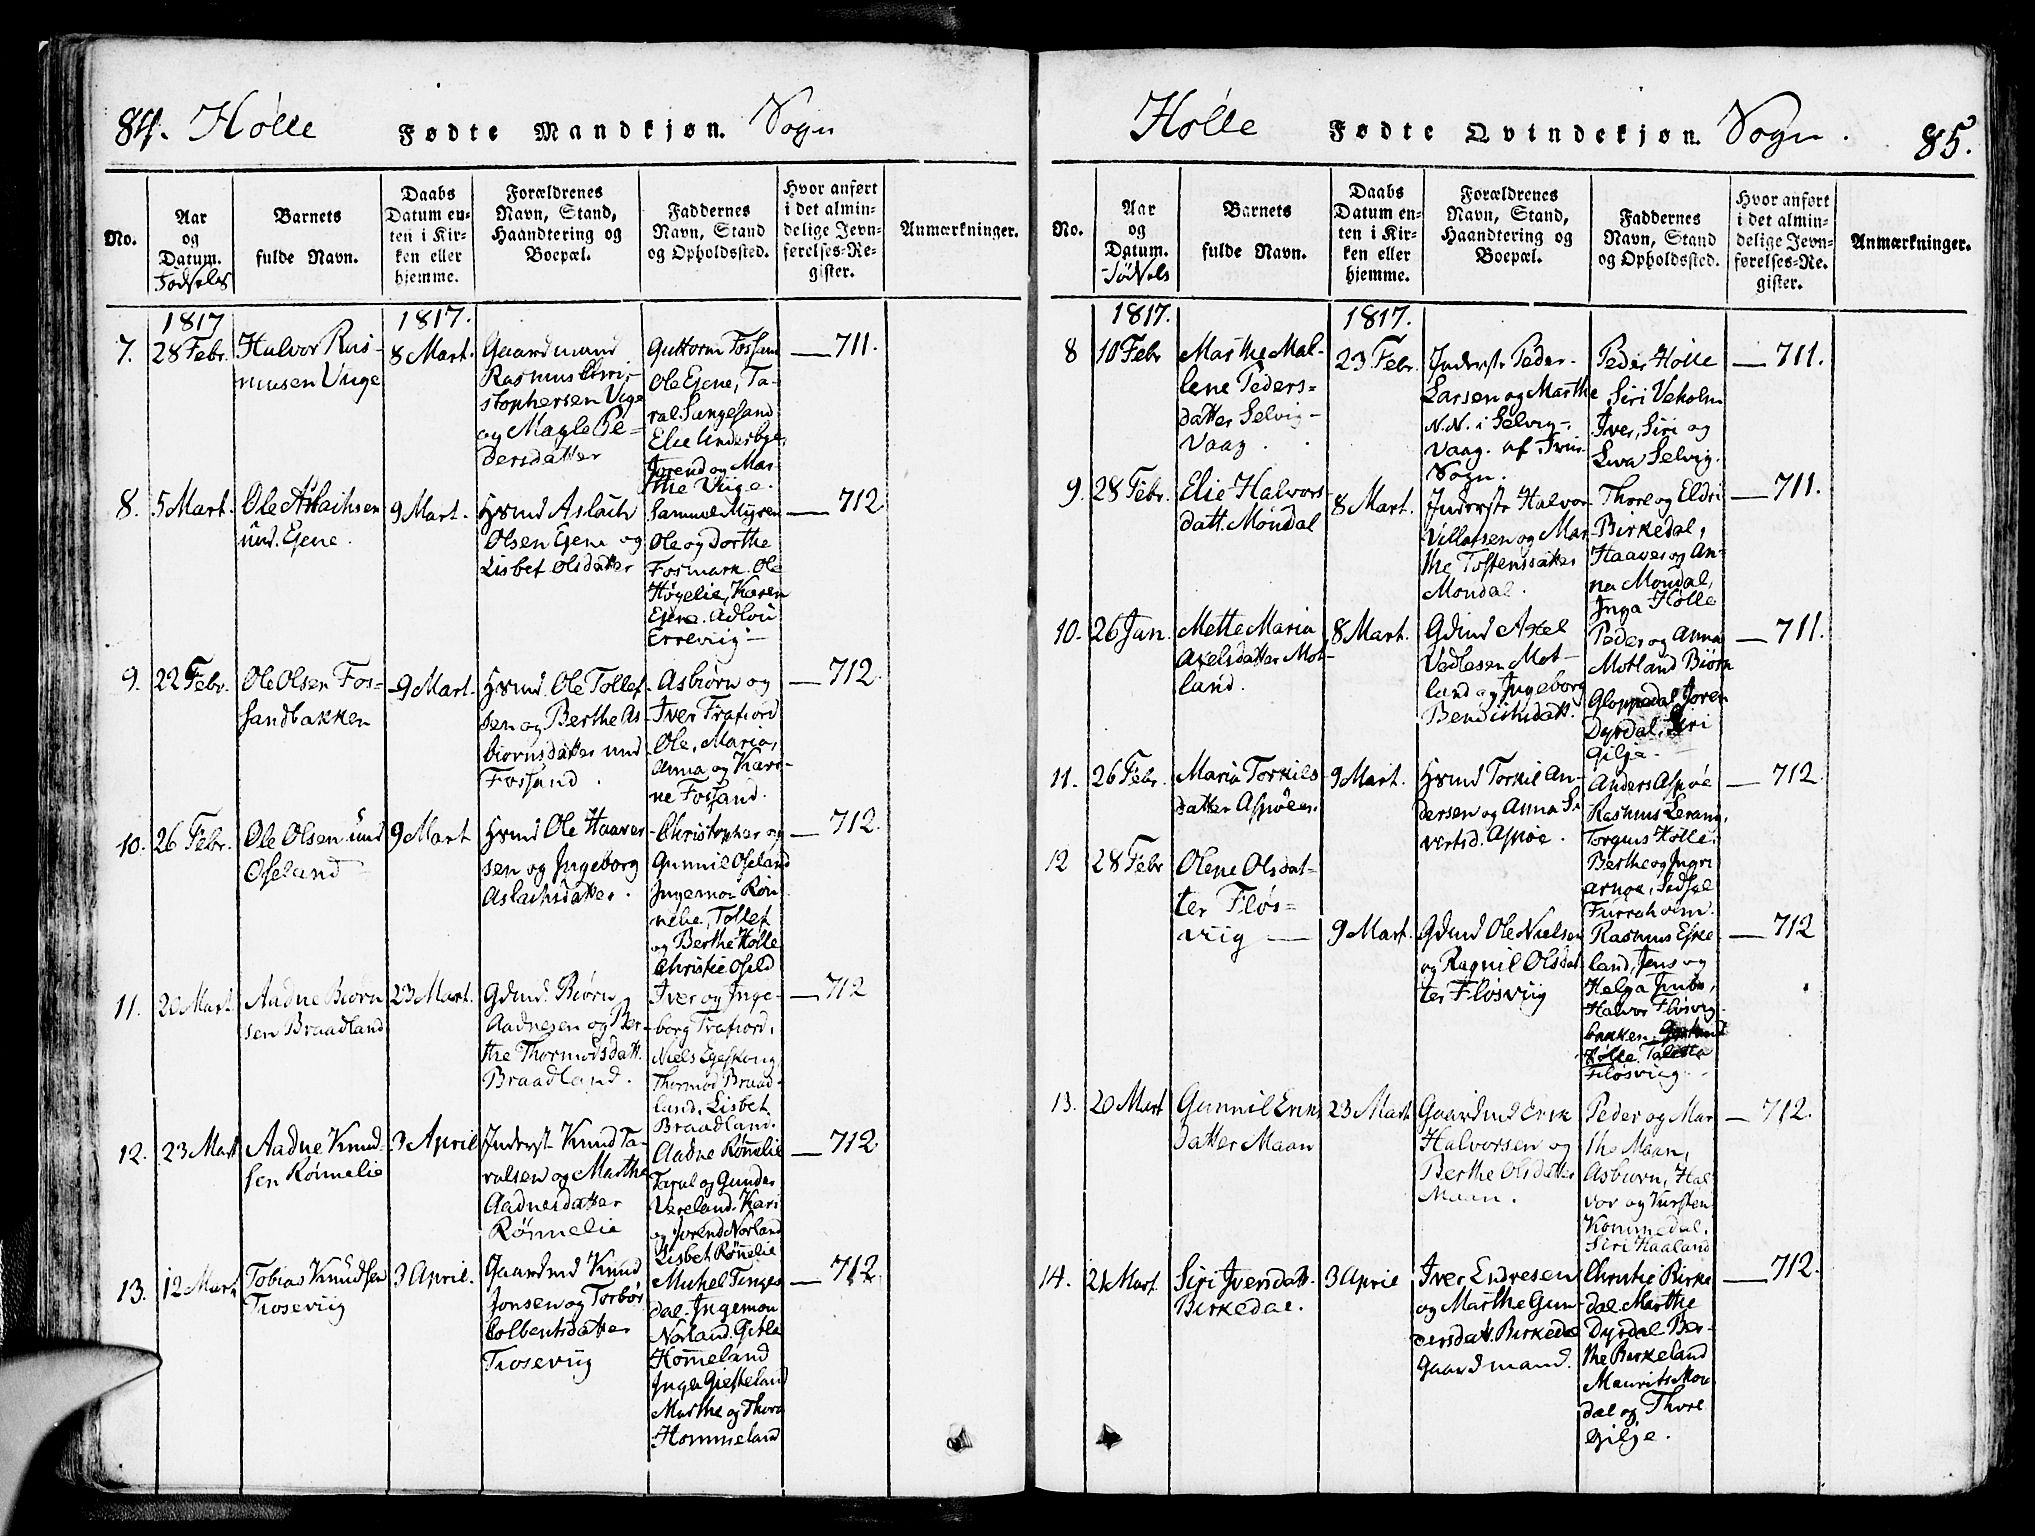 84. Hølle Fødte Mandkjøn. Sogn
No.
Aar
og
Datum.
Fødsels
Barnets
fulde Navn.
Daabs
Datum en-
ten i Kir-
ken eller
hjemme.
Forældrenes
Navn, Stand,
Haandtering og
Boepæl.
Faddernes
Navn, Stand
og Opholdssted.
Hvor anført
i det almin-
delige Jevn-
førelses-Re-
gister.
Anmærkninger.
1817
1817.
7.
28 Febr.
Halvor Ras-
musen Uige
8 Mart.
Gaardmand
Rasmus Chri-
stophersen Uige
og Magle Pe-
dersdatter
Guttorm Fossan
Ole Ejene, Ta-
ral Lungesand
Elie Underbge,
Jorend og Mar
the Uige.
711.
8.
5 Mart.
Ole Aslachsen
und. Ejene.
9 Mart.
Hsmd Aslach
Olsen Ejene og
Lisbet Olsdatter
Samuel Myren
Ole og Dorthe
Fosmark. Ole
Høgelie, Karen
Ejene. Adlou
Erreviig
712
9.
22 Febr.
Ole Olsen Fos-
sandbakken
9 Mart.
Hsmd. Ole Tollef
sen og Berthe As
biørnsdatter und
Fossand.
Asbiørn og
Iver Frafiord
Ole, Maria,
Anna og Kari-
ne Fossand.
712.
10.
26 Febr.
Ole Olsen und
Oseland
9 Mart
Hsmd Ole Haaver
sen og Ingeborg
Aslachsdatter.
Christopher og
Gunnil Oseland
Ingemoi Røn
nelie, Tollef
og Berthe Hølle
Christie Oseld
712.
11.
20 Mart.
Aadne Biørn
sen Braadland
23 Mart.
Gdmd. Biørn
Aadnesen og Ber-
the Thormodsdatt.
Braadland.
Iver og Inge-
borg Frafiord,
Niels Egeskong
Thormod Braad-
land, Lisbet
Braadland.
712
12.
23 Mart
Aadne Knud-
sen Rønnelie
3 April
Inderst Knud Ta-
ralsen og Marthe
Aadnesdatter
Rønnelie
Aadne Rønnelie
Taral og Gunder
Vereland. Kari
og Jorend Norland
Lisbet Rønnelie
712.
13.
12 Mart
Tobias Knudsen
Trosevüg
3 April.
Gaardmd Knud
Jonsen og Torbør
Colbentsdatter
Trosevüg
Michel Tenges
dal. Ingemon
Norland. Gitle
Hommeland
Inga Giesteland
Marthe og Thora
Hommeland
712.
Hølle Fødte Qvindekjøn. Sogn. 85.
No.
Aar
og
Datum.
Fødsels
Barnets
fulde Navn.
Daabs
Datum en-
ten i Kir-
ken eller
hjemme.
Forældrenes
Navn, Stand,
Haandtering og
Boepæl.
Faddernes
Navn, Stand
og Opholdssted.
Hvor anført
i det almin-
delige Jevn-
førelses-Re-
gister.
Anmærkninger.
1817.
1817.
8
10 Febr
Marthe Mal-
lene Peders-
datter Selvig-
Vaag.
23 Febr.
Inderste Peder
Larsen og Marthe
N.N. i Selvig-
Vaag. af
Sogn.
Peder Hølle
Siri Veholm
Iver, Siri og
Lisva Selvig.
711.
9.
28 Febr.
Elie Halvors
datt. Mondal
8 Mart.
Inderste Halvor
Villatsen og Mar
the Tostensdatter
Mondal.
Thore og Eldri
Birkedal,
Haaver og An-
na Mondal,
Inga Hølle
711.
10.
26 Jan.
Mette Maria
Axelsdatter Mot-
land.
8 Mart.
Gdmd Axel
Vedlesen Mot-
land og Ingeborg
Bendichsdatt.
Peder og Anna
Motland Biørn
Gloppedal Joren
Dyrdal, Siri
Gilje
711.
11.
26 Febr.
Maria Torkils
datter Aspøen.
9 Mart.
Hsmd Torkil An-
dersen og Anna Si
vertsd. Aspøe.
Anders Aspøe
Rasmus Lerang,
Torgus Hølle.
Berthe og Ingri
Arnøe, Sidsel
Furreholm.
712.
12
28 Febr
Olene Olsdat-
ter Fløs-
viig
9 Mart.
Gdmd Ole Nielsen
og Ragnil Olsdat
ter Fløsviig
Rasmus Eske
land, Jens og
Helga Junbo,
Halvor Fløsvig-
bakken.
Hølle. Taletta
Fløsviig.
712
13.
20 Mart
Gunnil Eriks
datter Maan
23 Mart
Gaardmd Erik
Halvorsen og
Berthe Olsdatter
Maan.
Peder og Mar
the Maan,
Asbiørn, Hal
vor og Kirsten
Kommedal.
Siri Haaland
712.
14.
21 Mart.
Siri Iversdatt.
Birkedal.
3 April
Iver Endresen
og Marthe Gun-
dersdatt. Birkedal
Gaardmand.
Christie Birke
dal Marthe
Dyrdal Ber-
the Birkeland
Maurits Mon
dal og Thore
Gilje.
712.